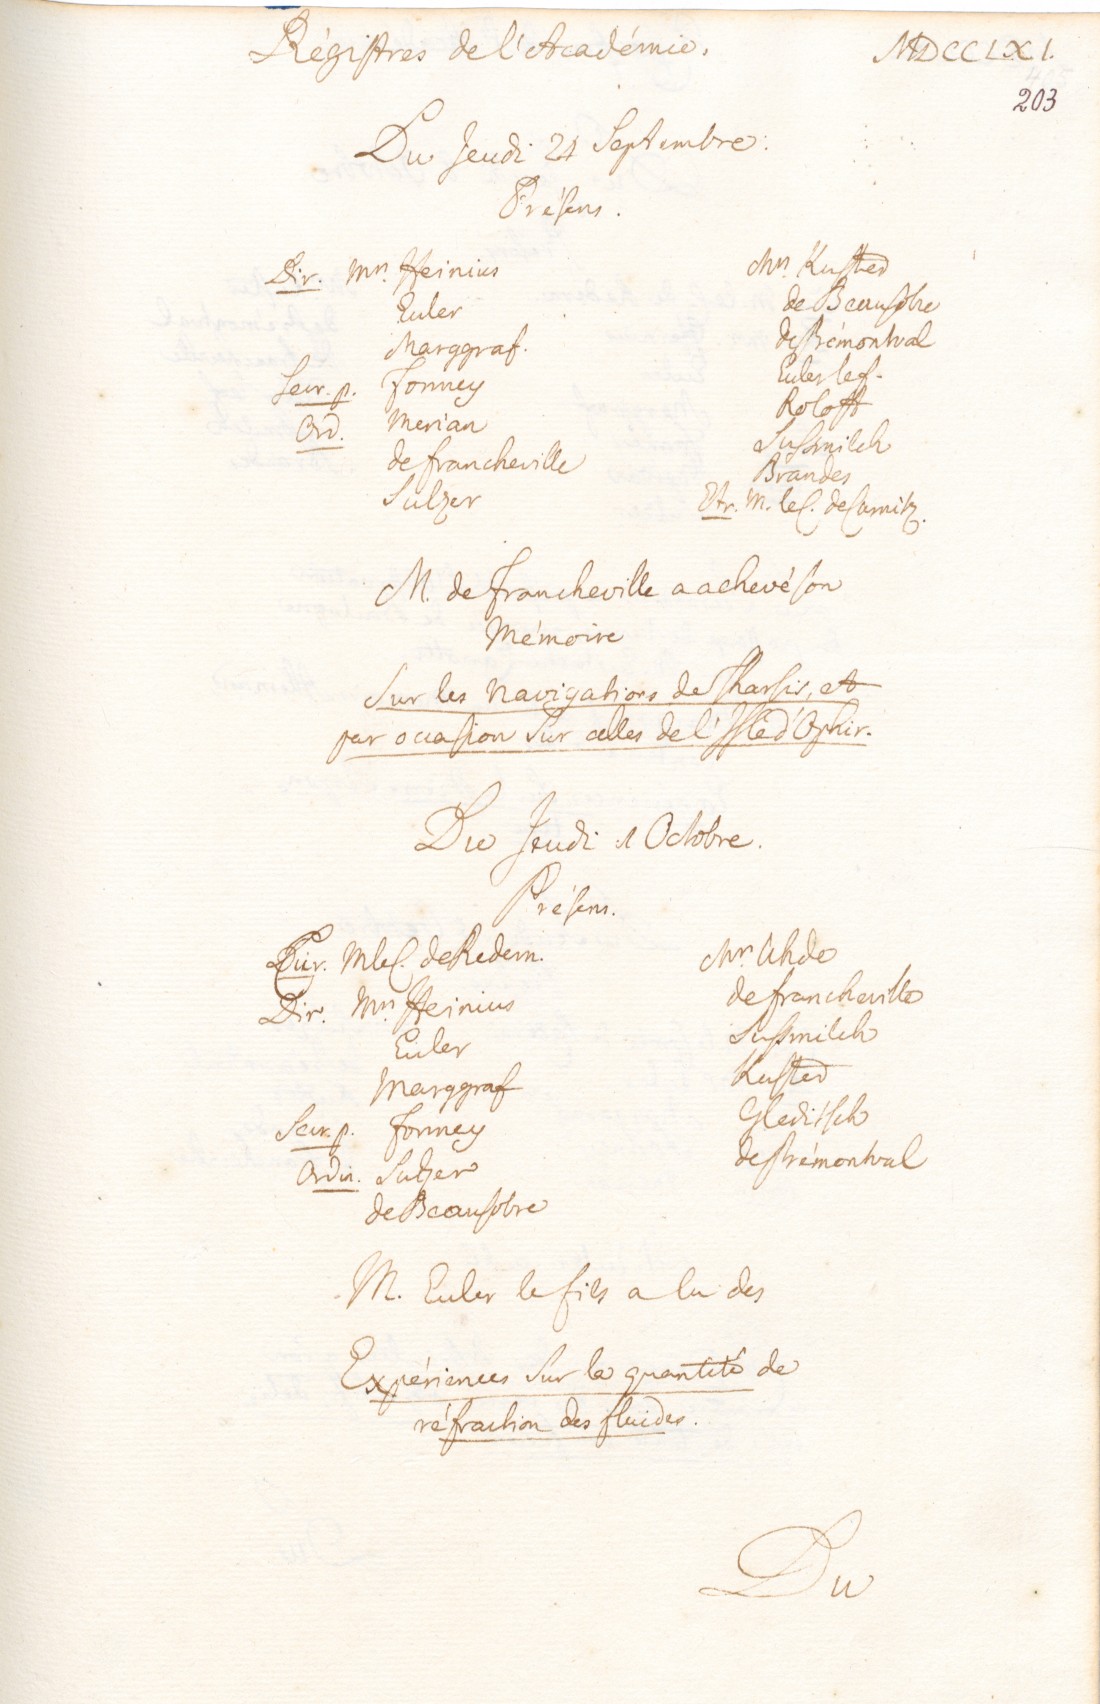 Régistres de l'Académie.
MDCCLXI.
203
Du Jeudi 24 Septembre.
Présens.
Dir. Mrs. Heinius
Euler
Marggraf.
Secr. p. Formey
Ord. Merian
de Francheville
Sulzer
Mrs. Kuster
de Beausobre
de Prémontval
Euler le f.
Roloff
Sussmilch
Brandes
Etr. M. le C. de Carnitz.
M. de Francheville a achevé son
Mémoire
Sur les navigations de Tharsis, et
par occasion sur celles de l'Isle d'Ophir.
Du Jeudi 1 Octobre.
Présens.
Cur. M le C. de Redern.
Dir. Mrs. Heinius
Euler
Marggraf
Secr. p. Formey
Ordin. Sulzer
de Beausobre
Mrs. Uhde
de Francheville
Sussmilch
Kuster
Gleditsch
de Prémontval
M. Euler le fils a lu des
Expériences sur la quantité de
réfraction des fluides.
Du